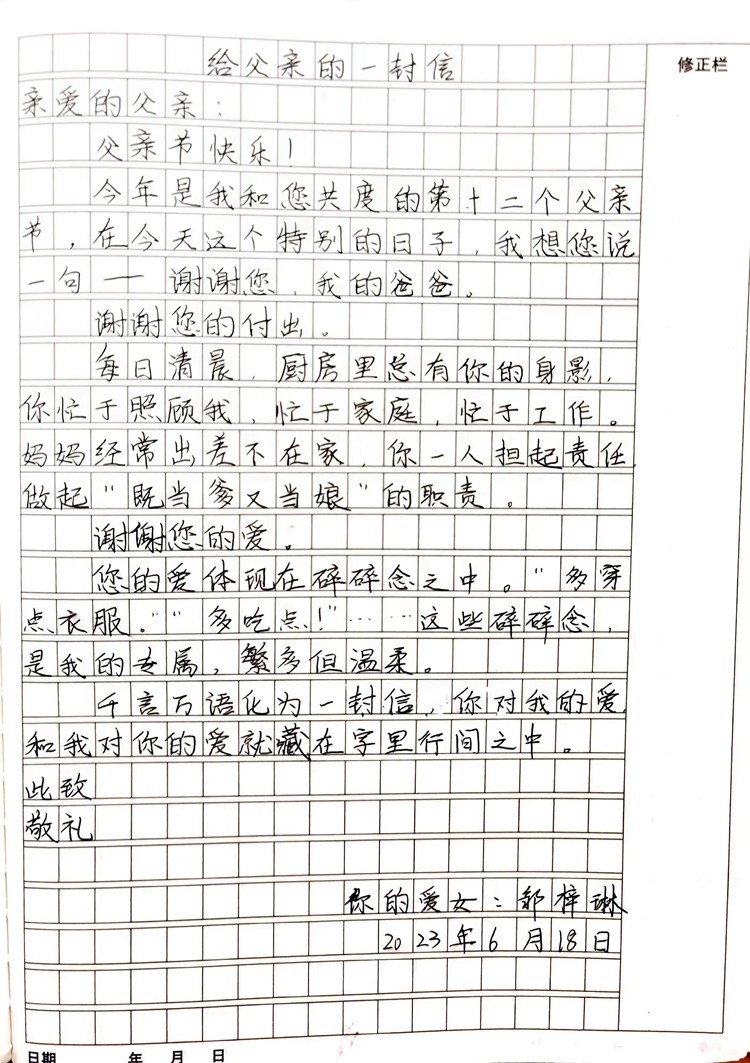 给父亲的一封信
修正栏
亲爱的父亲:
父亲节快乐!
今年是我和您共度的第十二个父亲
节,在今天这个特别的日子,我想您说
一句——谢谢您,我的爸爸。
谢谢您的付出。
每日清晨,厨房里总有你的身影,
你忙于照顾我,忙于家庭,忙于工作。
妈妈经常出差不在家,你一人担起责任,
做起“既当爹又当娘”的职责。
谢谢您的爱。
您的爱体现在碎碎念之中。“多穿
点衣服。”“多吃点!”……这些碎碎念,
是我的专属,繁多但温柔。
千言万语化为一封信,你对我的爱,
和我对你的爱就藏在字里行间之中。
此致
敬礼
你的爱女:邹梓琳
2023年6月18日
日期 年 月 日